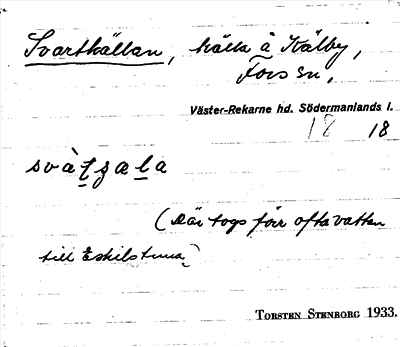 Svartkällan, källa å Kälby,
Fors sn,
Väster-Rekarne hd. Södermanlands l.
18 18
(Där togs förr ofta vatten
till Eskilstuna)
TORSTEN STENBORG 1933.